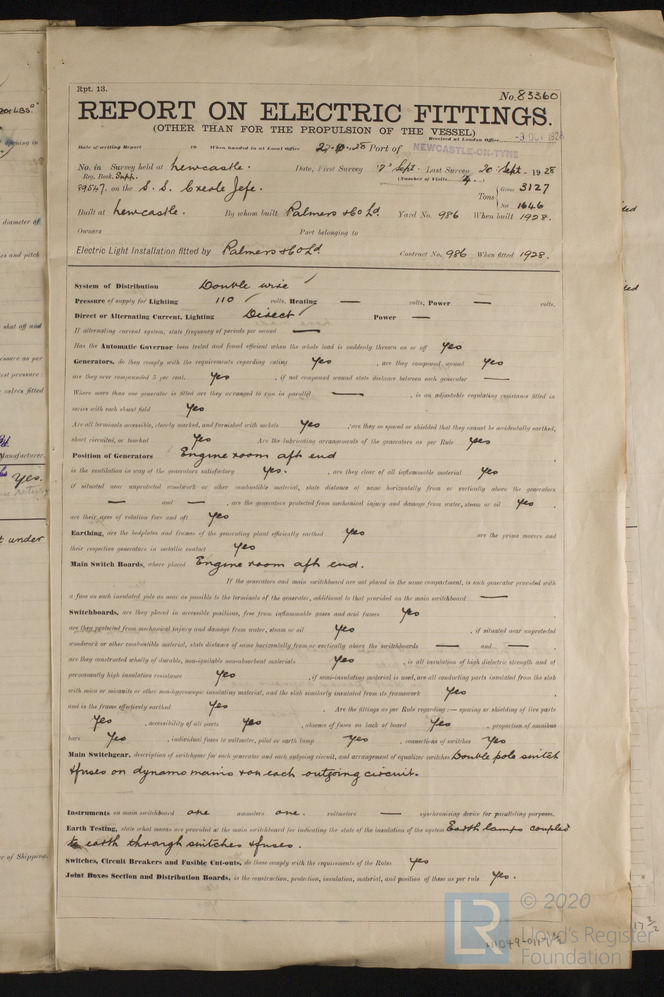 Rpt. 13.
No. 83360
REPORT ON ELECTRIC FITTINGS.
(OTHER THAN FOR THE PROPULSION OF THE VESSEL)
Received at London Office
Date of writing Report 19 When handed in at Local Office 27-9-28 Port of NEWCASTLE-ON-TYNE
No. in Survey held at Newcastle. Date, First Survey 7 Sept. Last Survey 20 Sept. 1928
Reg. Book. Supp. (Number of Visits 4.)
89547. on the S.S. Creole Jefe. Tons Gross 3127
Net 1646
Built at Newcastle. By whom built Palmers & Co Ld. Yard No. 986 When built 1928.
Owners Port belonging to
Electric Light Installation fitted by Palmers & Co Ld. Contract No. 986 When fitted 1928.
System of Distribution Double wire
Pressure of supply for Lighting 110 volts, Heating — volts, Power — volts.
Direct or Alternating Current, Lighting Direct Power —
If alternating current system, state frequency of periods per second —
Has the Automatic Governor been tested and found efficient when the whole load is suddenly thrown on or off Yes
Generators, do they comply with the requirements regarding rating Yes , are they compound wound Yes
are they over compounded 5 per cent. Yes , if not compound wound state distance between each generator —
Where more than one generator is fitted are they arranged to run in parallel — , is an adjustable regulating resistance fitted in
series with each shunt field Yes
Are all terminals accessible, clearly marked, and furnished with sockets Yes , are they so spaced or shielded that they cannot be accidentally earthed,
short circuited, or touched Yes Are the lubricating arrangements of the generators as per Rule Yes
Position of Generators Engine room aft end
is the ventilation in way of the generators satisfactory Yes. , are they clear of all inflammable material Yes
if situated near unprotected woodwork or other combustible material, state distance of same horizontally from or vertically above the generators
— and — , are the generators protected from mechanical injury and damage from water, steam or oil Yes .
are their axes of rotation fore and aft Yes
Earthing, are the bedplates and frames of the generating plant efficiently earthed Yes are the prime movers and
their respective generators in metallic contact Yes
Main Switch Boards, where placed Engine room aft end.
If the generators and main switchboard are not placed in the same compartment, is each generator provided with
a fuse on each insulated pole as near as possible to the terminals of the generator, additional to that provided on the main switchboard —
Switchboards, are they placed in accessible positions, free from inflammable gases and acid fumes Yes
are they protected from mechanical injury and damage from water, steam or oil Yes , if situated near unprotected
woodwork or other combustible material, state distance of same horizontally from or vertically above the switchboards — and — .
are they constructed wholly of durable, non-ignitable non-absorbent materials Yes , is all insulation of high dielectric strength and of
permanently high insulation resistance Yes , if semi-insulating material is used, are all conducting parts insulated from the slab
with mica or micanite or other non-hygroscopic insulating material, and the slab similarly insulated from its framework Yes .
and is the frame effectively earthed Yes . Are the fittings as per Rule regarding :— spacing or shielding of live parts
Yes , accessibility of all parts Yes , absence of fuses on back of board Yes , proportion of omnibus
bars Yes , individual fuses to voltmeter, pilot or earth lamp Yes , connections of switches Yes
Main Switchgear, description of switchgear for each generator and each outgoing circuit, and arrangement of equalizer switches Double pole switch
& fuses on dynamo mains & on each outgoing circuit.
Instruments on main switchboard one ammeters one. voltmeters — synchronising device for paralleling purposes.
Earth Testing, state what means are provided at the main switchboard for indicating the state of the insulation of the system Earth lamps coupled
to earth through switches & fuses.
Switches, Circuit Breakers and Fusible Cut-outs, do these comply with the requirements of the Rules Yes
Joint Boxes Section and Distribution Boards, is the construction, protection, insulation, material, and position of these as per rule Yes.
© 2020
LR
Lloyd's Register
Foundation